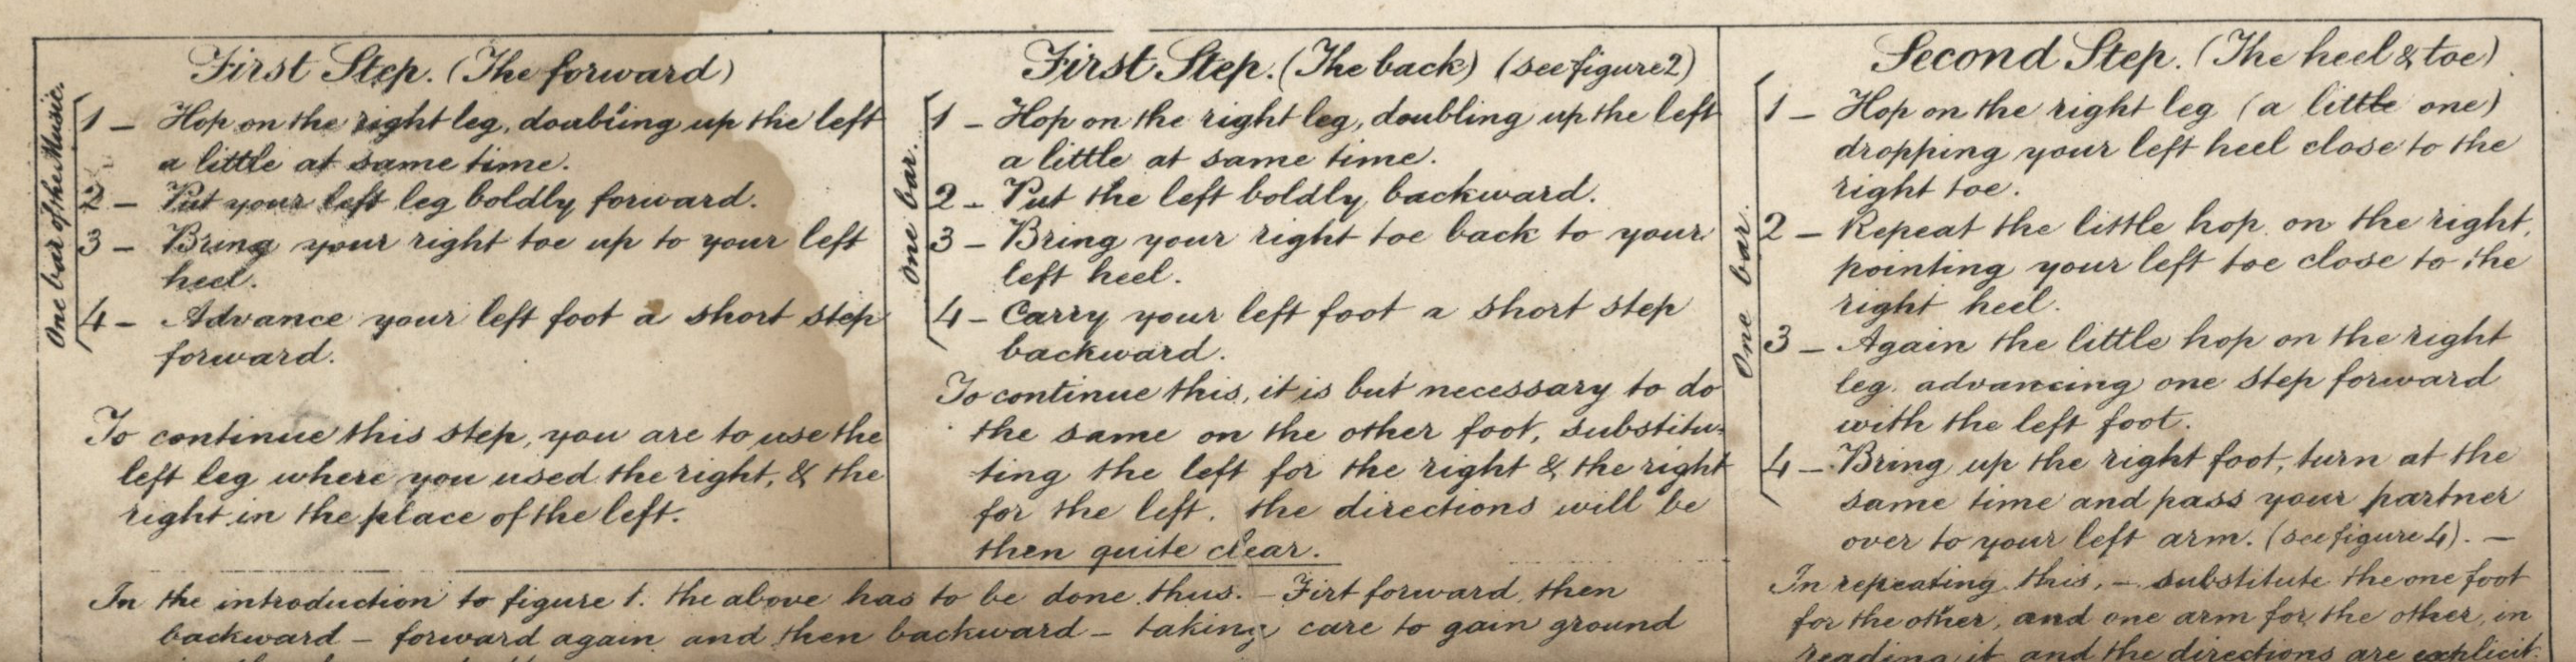 First Step. (The forward)
One bar of the Music.
1 – Hop on the right leg, doubling up the left
a little at same time.
2 – Put your left leg boldly forward.
3 – Bring your right toe up to your left
heel.
4 – Advance your left foot a short step
forward.
To continue this step, you are to use the
left leg where you used the right, & the
right in the place of the left.
First Step. (The back) (see figure 2)
One bar.
1 – Hop on the right leg, doubling up the left
a little at same time.
2 – Put the left boldly backward.
3 – Bring your right toe back to your
left heel.
4 – Carry your left foot a short step
backward.
To continue this, it is but necessary to do
the same on the other foot, substitu-
ting the left for the right & the right
for the left. the directions will be
then quite clear.
In the introduction to figure 1. the above has to be done thus. – Firt forward, then
backward – forward again and then backward – taking care to gain ground
Second Step. (The heel & toe)
One bar.
1 – Hop on the right leg (a little one)
dropping your left heel close to the
right toe.
2 – Repeat the little hop on the right,
pointing your left toe close to the
right heel.
3 – Again the little hop on the right
leg, advancing one step forward
with the left foot.
4 – Bring up the right foot, turn at the
same time and pass your partner
over to your left arm. (see figure 4). –
In repeating this, – substitute the one foot
for the other, and one arm for the other, in
reading it and the directions are explicit.